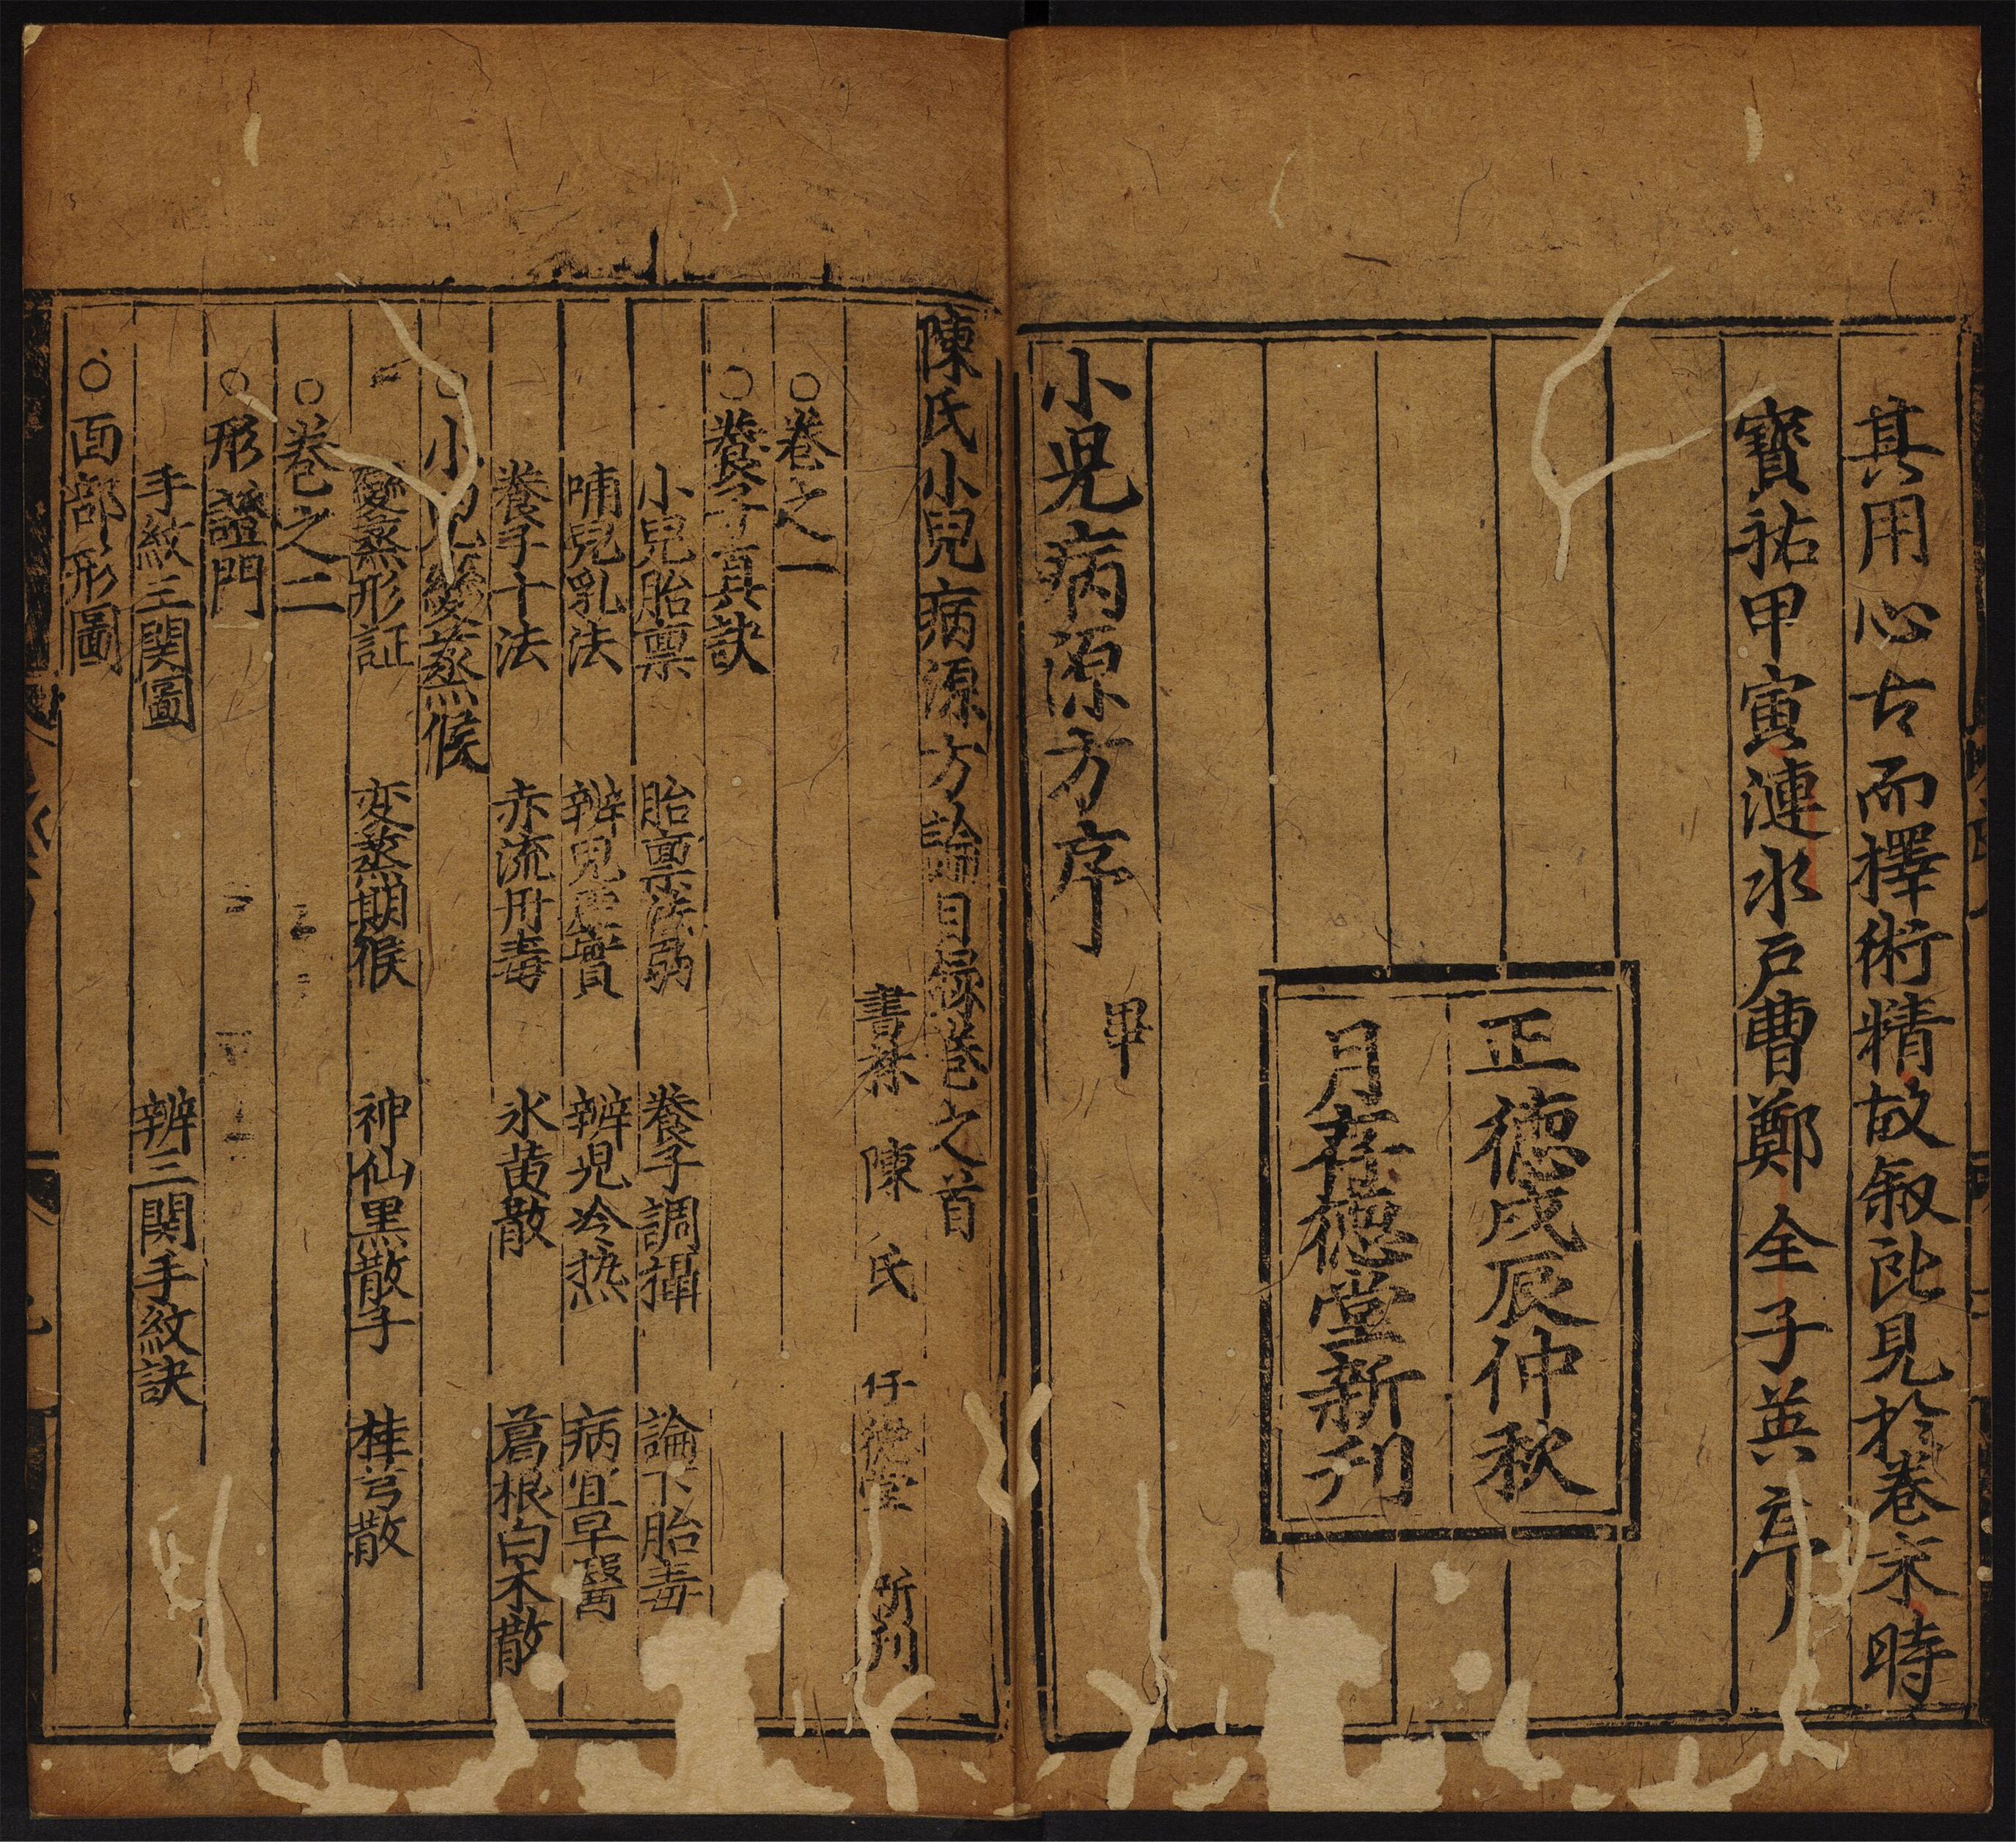 其用心古而擇術精故叙所見於卷末時
寶祐甲寅漣水戶曹鄭全子英序
正德戊辰仲秋
月存德堂新刊
小兒病源方序
畢
陳氏小兒病源方論目録卷之首
書林 陳 氏 存德堂 新刊
○卷之一
○養子真訣
小兒胎稟 胎稟怯弱 養子調攝 論下胎毒
哺兒乳法 辨兒虛實 辨児冷热 病宜早醫
養子十法 赤流丹毒 氷黄散 葛根白术散
○小兒變蒸候
變蒸形証 変蒸期候 神仙黒散子 桂芎散
○卷之二
○形證門
手紋三関圖 辨三関手紋訣
○面部形圖